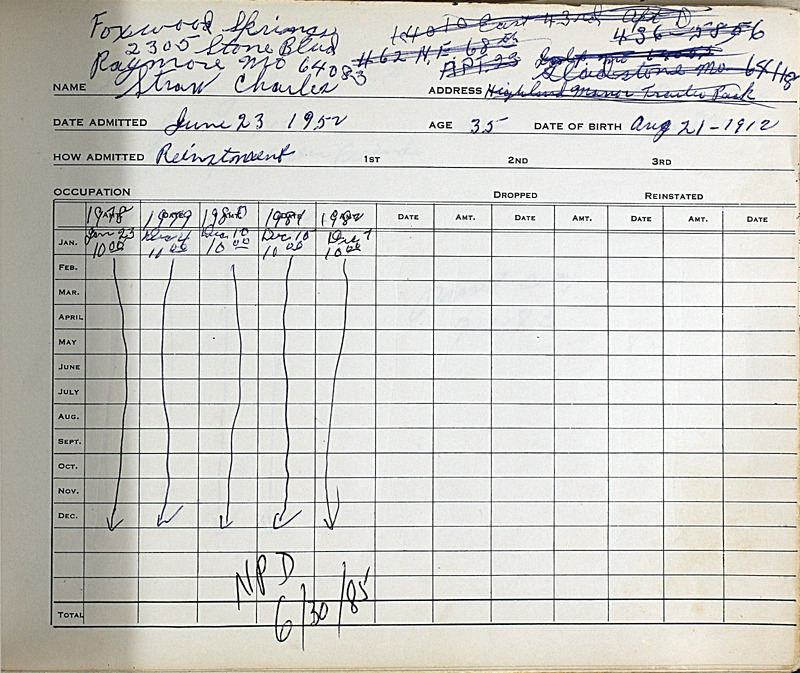 Foxwood Springs
2305 Stone Blvd
Raymore Mo 64083
14010 East 43rd Apt D
436-5856
#62 N.E 68th
APT. 23
Gladstone Mo 64118
NAME Straw Charles ADDRESS Highland Manor Trailer Park
DATE ADMITTED June 23 1952 AGE 35 DATE OF BIRTH Aug 21-1912
HOW ADMITTED Reinstatement 1ST 2ND 3RD
OCCUPATION DROPPED REINSTATED
1978 1979 1980 1981 1982 DATE AMT. DATE AMT. DATE AMT. DATE
JAN. Jan 23 Dec 10 Dec 15 Dec 7
10 00 10 00 10 00 10 00 10 00
FEB.
MAR.
APRIL
MAY
JUNE
JULY
AUG.
SEPT.
OCT.
NOV.
DEC.
NPD
6/30/85
TOTAL